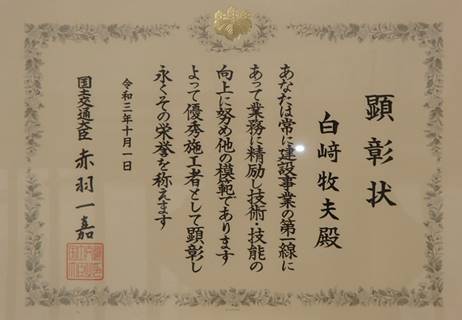 顕彰状
白﨑牧夫殿
あなたは常に建設事業の第一線に
あって業務に精励し技術・技能の
向上に努め他の模範であります
よって優秀施工者として顕彰し
永くその栄誉を称えます
令和三年十月一日
国土交通大臣 赤羽一嘉